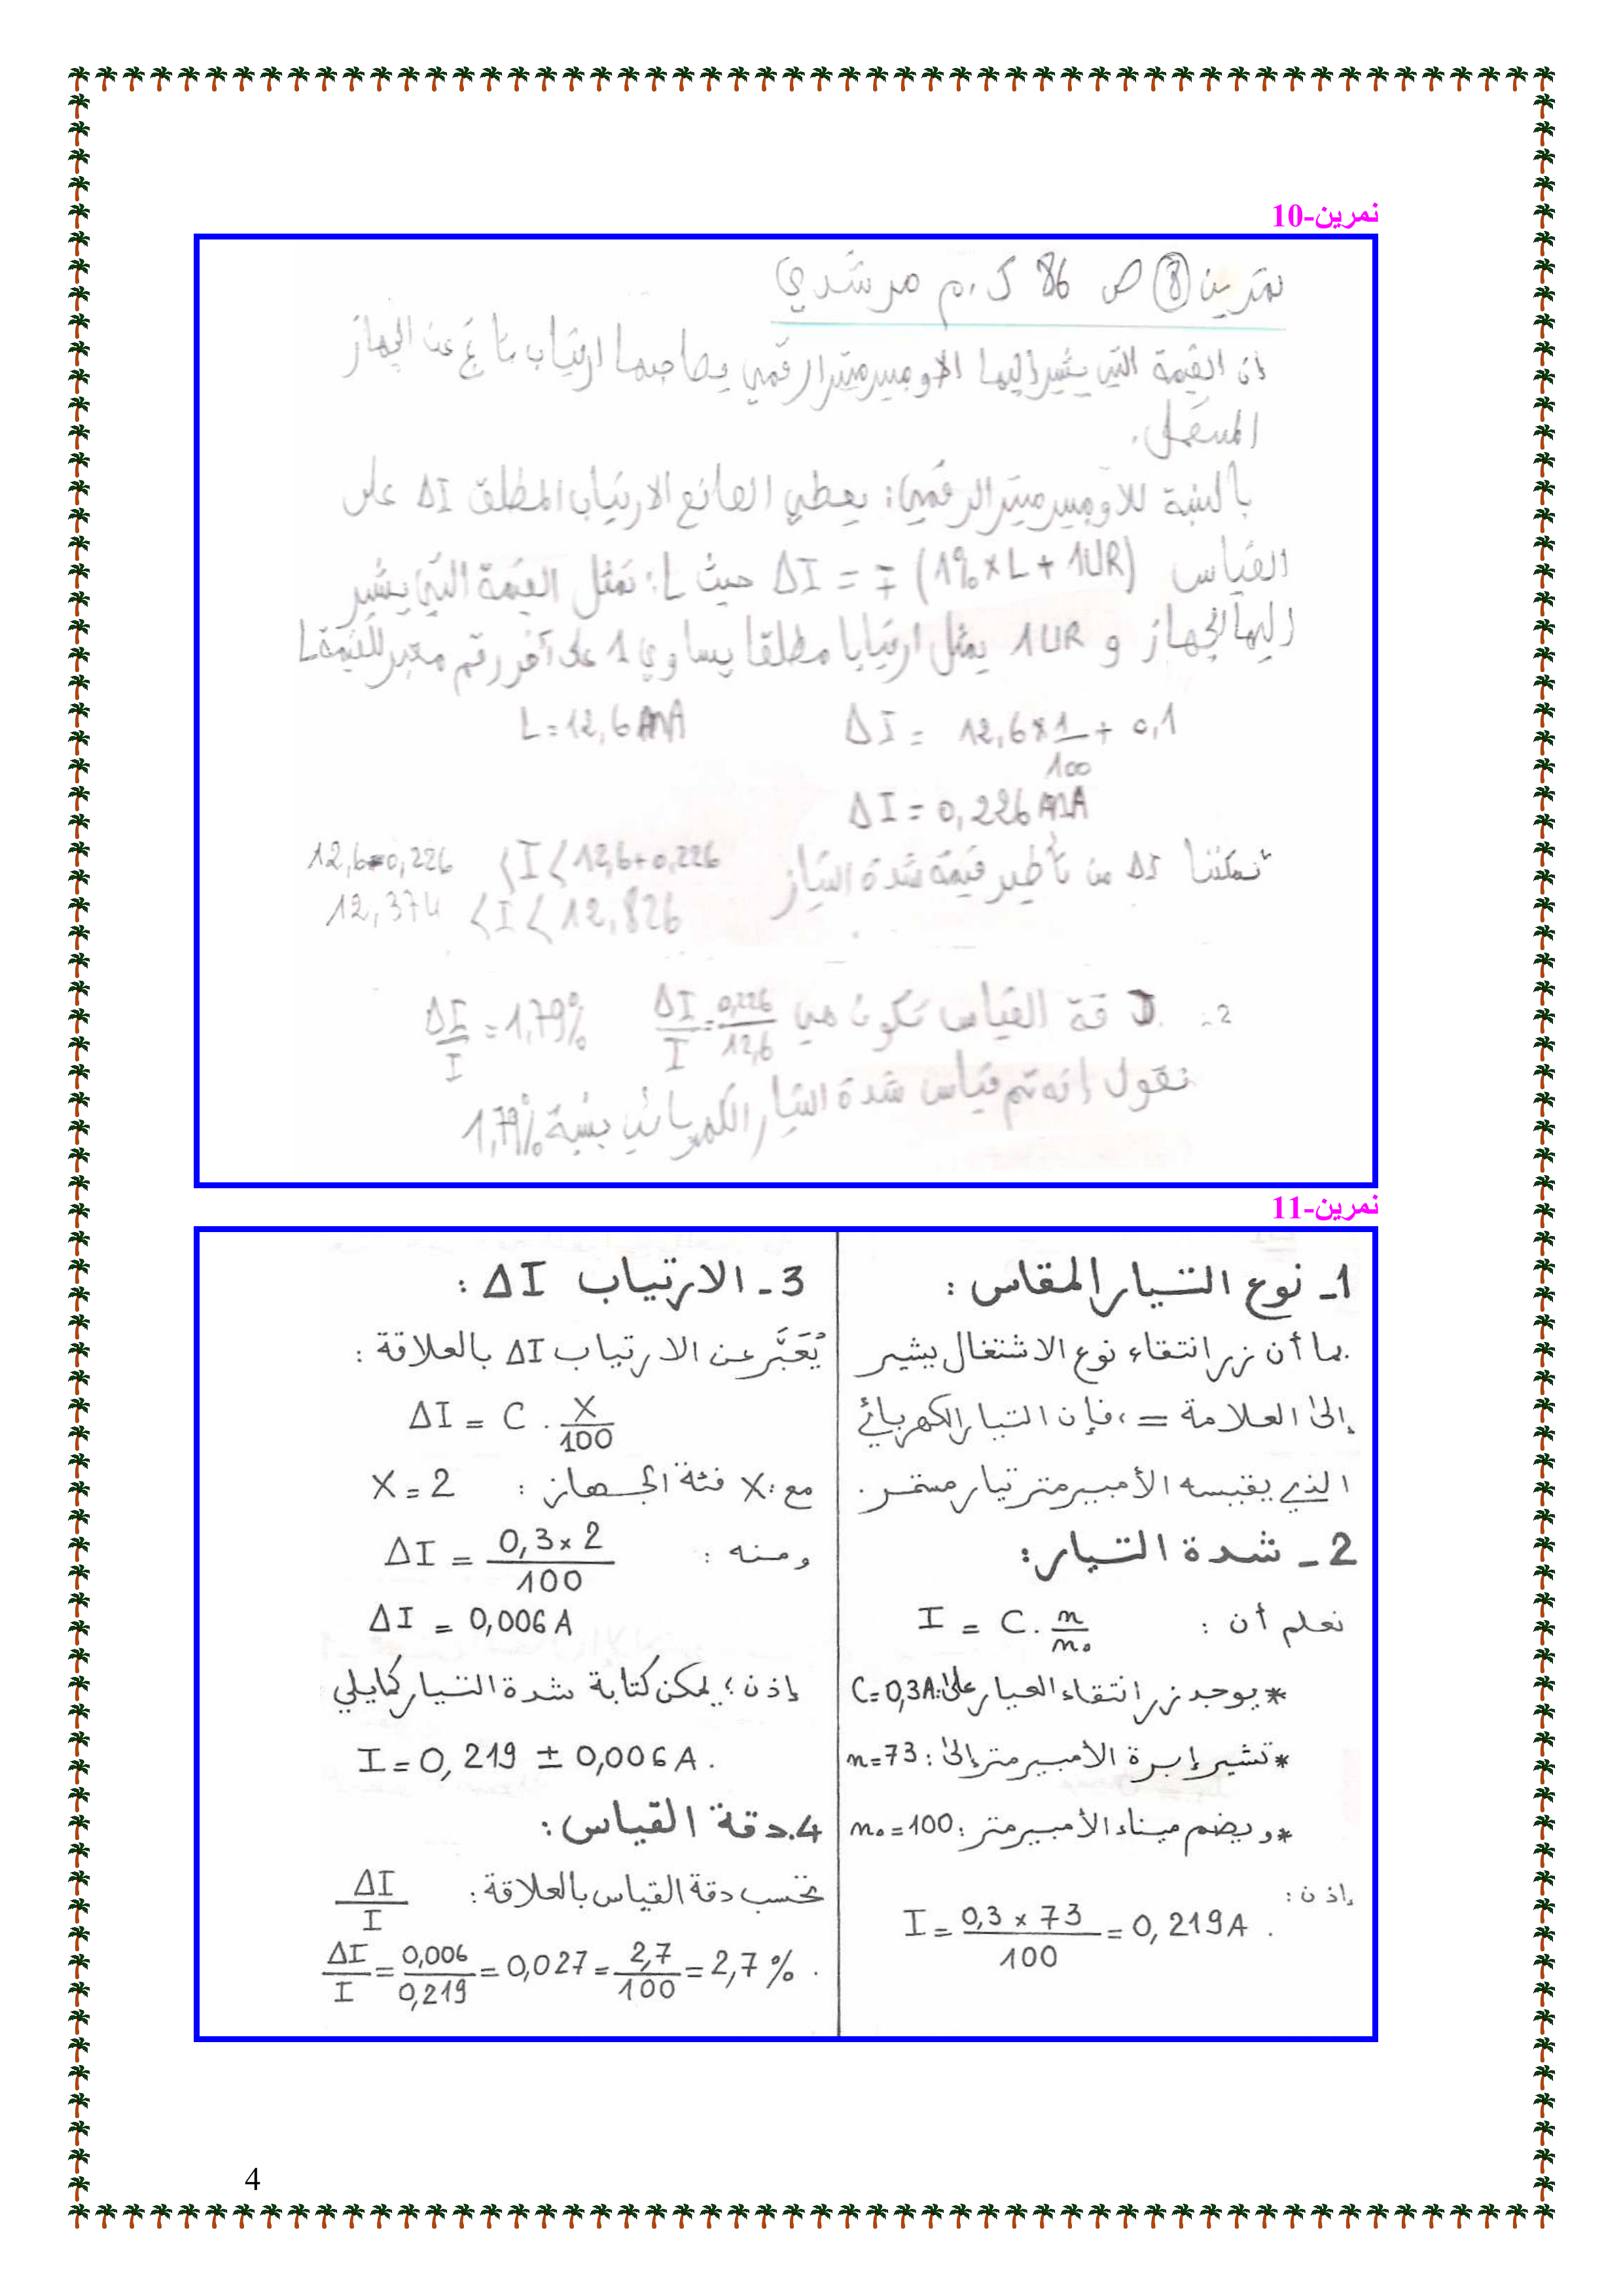 تمرين-10
تمرين 8 ص 86 ك.م مرشدي
إن القيمة التي يشير إليها الأومبيرميتر الرقمي يصاحبها ارتياب ناتج عن الجهاز
المستعمل.
بالنسبة للأومبيرميتر الرقمي: يعطي الصانع الارتياب المطلق ΔI على
القياس ΔI = ∓ (1% × L + 1UR) حيث L: تمثل القيمة التي يشير
إليها الجهاز و 1UR يمثل ارتيابا مطلقا يساوي 1 على آخر رقم معبر للقيمة L
ΔI = 12,6 × 1/100 + 0,1 L = 12,6 mA
ΔI = 0,226 mA
تمكننا ΔI من تأطير قيمة شدة التيار 12,6-0,226 < I < 12,6+0,226
12,374 < I < 12,826
2- دقة القياس تكون هي ΔI/I = 0,226/12,6 ΔI/I = 1,79%
نقول إنه تم قياس شدة التيار الكهربائي بنسبة 1,79%
تمرين-11
1- نوع التيار المقاس :
بما أن زر انتقاء نوع الاشتغال يشير
إلى العلامة = ، فإن التيار الكهربائي
الذي يقيسه الأمبيرمتر تيار مستمر.
2- شدة التيار:
نعلم أن : I = C . n/n₀
* يوجد زر انتقاء العيار على: C = 0,3A
* تشير إبرة الأمبيرمتر إلى : n = 73
* و يضم ميناء الأمبيرمتر : n₀ = 100
إذن :
I = 0,3 × 73/100 = 0,219 A .
3- الارتياب ΔI :
يُعَبَّر عن الارتياب ΔI بالعلاقة :
ΔI = C . X/100
مع : X فئة الجهاز : X = 2
ومنه : ΔI = 0,3 × 2/100
ΔI = 0,006 A
إذن ؛ يمكن كتابة شدة التيار كمايلي
I = 0,219 ± 0,006 A .
4. دقة القياس :
تحتسب دقة القياس بالعلاقة : ΔI/I
ΔI/I = 0,006/0,219 = 0,027 = 2,7/100 = 2,7 % .
4